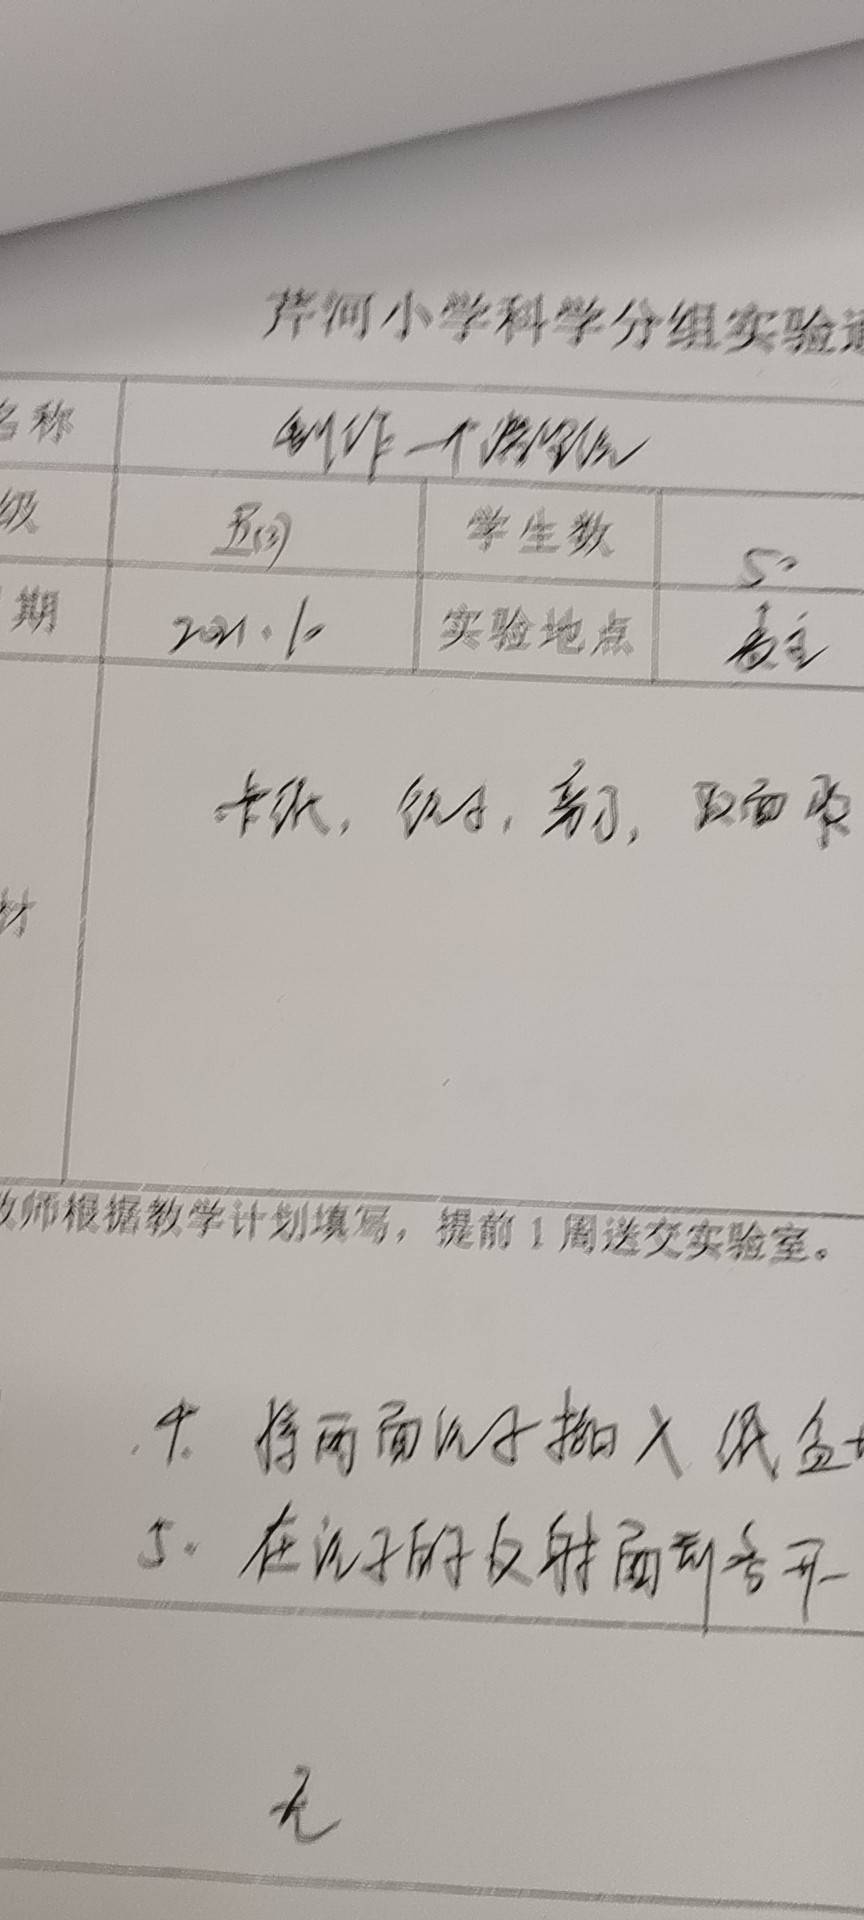 芹河小学科学分组实验通
名称 制作一个潜望镜
级 五(3) 学生数 50
期 2021.10 实验地点
卡纸, 镜子, 剪刀, 双面胶
材
教师根据教学计划填写，提前1周送交实验室。
4. 将两面镜子插入纸盒
5. 在镜子的反射面剪去开
无